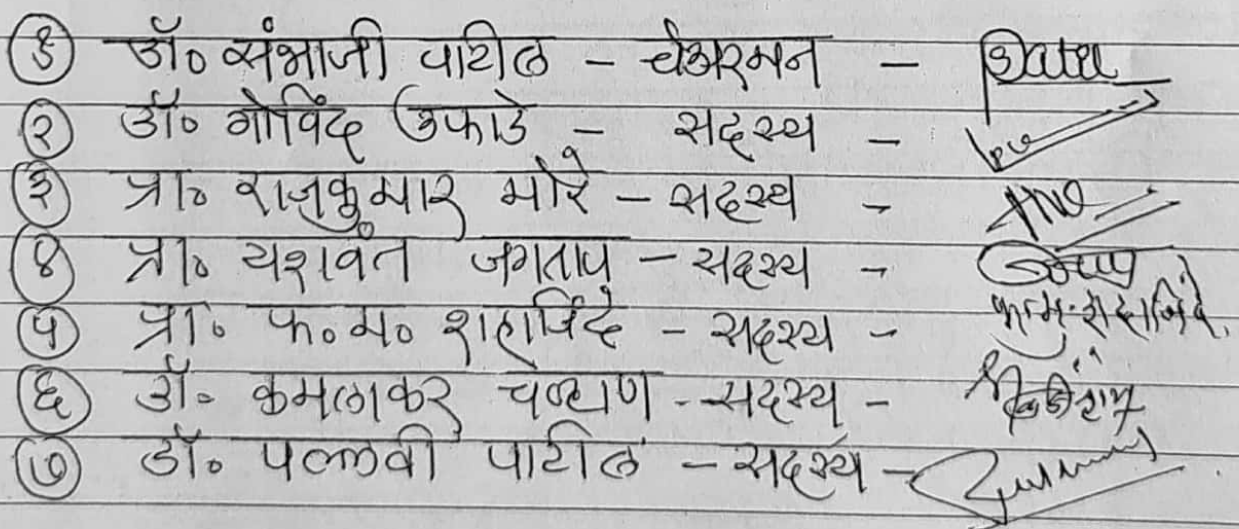 १ डॉ० संभाजी पाटील - चेअरमन -
२ डॉ० गोविंद उफाडे - सदस्य -
३ प्रा० राजकुमार मोरे - सदस्य -
४ प्रा० यशवंत जगताप - सदस्य -
५ प्रा० फ० म० शहाजिंदे - सदस्य - फ.म. शहाजिंदे.
६ डॉ० कमलाकर चव्हाण - सदस्य -
७ डॉ० पल्लवी पाटील - सदस्य -